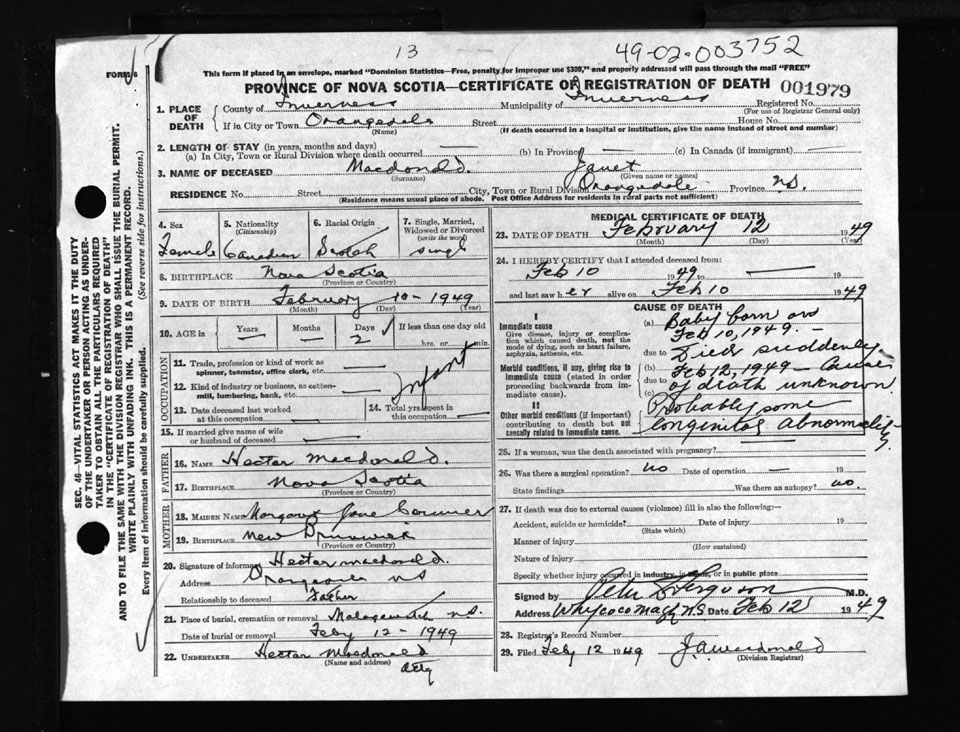 13
49-02-003752
FORM 6
This form if placed in an envelope, marked "Dominion Statistics—Free, penalty for improper use $300," and properly addressed will pass through the mail "FREE"
PROVINCE OF NOVA SCOTIA—CERTIFICATE OF REGISTRATION OF DEATH 001979
1. PLACE OF DEATH
County of Inverness Municipality of Inverness Registered No.
(For use of Registrar General only)
If in City or Town Orangedale Street House No.
(Name) (If death occurred in a hospital or institution, give the name instead of street and number)
2. LENGTH OF STAY (in years, months and days)
(a) In City, Town or Rural Division where death occurred — (b) In Province — (c) In Canada (if immigrant) —
3. NAME OF DECEASED Macdonald. Janet
(Surname) (Given name or names)
RESIDENCE No. Street City, Town or Rural Division Orangedale Province N.S.
(Residence means usual place of abode. Post Office Address for residents in rural parts not sufficient)
4. Sex Female
5. Nationality (Citizenship) Canadian
6. Racial Origin Scotch
7. Single, Married, Widowed or Divorced (write the word) Single
8. BIRTHPLACE Nova Scotia
(Province or Country)
9. DATE OF BIRTH February 10 - 1949
(Month) (Day) (Year)
10. AGE in Years — Months — Days 2 If less than one day old
hrs. or min.
OCCUPATION
11. Trade, profession or kind of work as spinner, teamster, office clerk, etc.
12. Kind of industry or business, as cotton-mill, lumbering, bank, etc.
Infant
13. Date deceased last worked at this occupation
14. Total yrs. spent in this occupation
15. If married give name of wife or husband of deceased —
FATHER
16. NAME Hector Macdonald.
17. BIRTHPLACE Nova Scotia
(Province or Country)
MOTHER
18. MAIDEN NAME Margaret Jane
19. BIRTHPLACE New Brunswick
(Province or Country)
20. Signature of informant Hector Macdonald.
Address Orangedale N.S
Relationship to deceased Father
21. Place of burial, cremation or removal Malagawatch N.S.
Date of burial or removal Feby 12 - 1949
22. UNDERTAKER Hector Macdonald
(Name and address)
MEDICAL CERTIFICATE OF DEATH
23. DATE OF DEATH February 12 1949
(Month) (Day) (Year)
24. I HEREBY CERTIFY that I attended deceased from:
Feb 10 1949 to — 19
and last saw her alive on Feb 10 1949
CAUSE OF DEATH
I
Immediate cause
Give disease, injury or complication which caused death, not the mode of dying, such as heart failure, asphyxia, asthenia, etc.
(a) Baby born on
Feb 10, 1949. —
due to Died suddenly
Morbid conditions, if any, giving rise to immediate cause (stated in order proceeding backwards from immediate cause).
(b) Feb 12, 1949 - Cause
due to of death unknown
(c)
II
Other morbid conditions (if important) contributing to death but not causally related to immediate cause.
Probably some
congenital abnormality.
25. If a woman, was the death associated with pregnancy?
26. Was there a surgical operation? no Date of operation — 19
State findings Was there an autopsy? no.
27. If death was due to external causes (violence) fill in also the following:—
Accident, suicide or homicide? Date of injury 19
(State which)
Manner of injury
(How sustained)
Nature of injury
Specify whether injury occurred in industry, in home, or in public place
Signed by Peter Ferguson M.D.
Address Whycocomagh N.S Date Feb 12 1949
28. Registrar's Record Number
29. Filed Feby 12 1949 J.A. Macdonald
(Division Registrar)
SEC. 46—VITAL STATISTICS ACT MAKES IT THE DUTY OF THE UNDERTAKER OR PERSON ACTING AS UNDERTAKER TO OBTAIN ALL THE PARTICULARS REQUIRED IN THE "CERTIFICATE OF REGISTRATION OF DEATH" AND TO FILE THE SAME WITH THE DIVISION REGISTRAR WHO SHALL ISSUE THE BURIAL PERMIT.
WRITE PLAINLY WITH UNFADING INK. THIS IS A PERMANENT RECORD.
Every item of information should be carefully supplied. (See reverse side for instructions.)